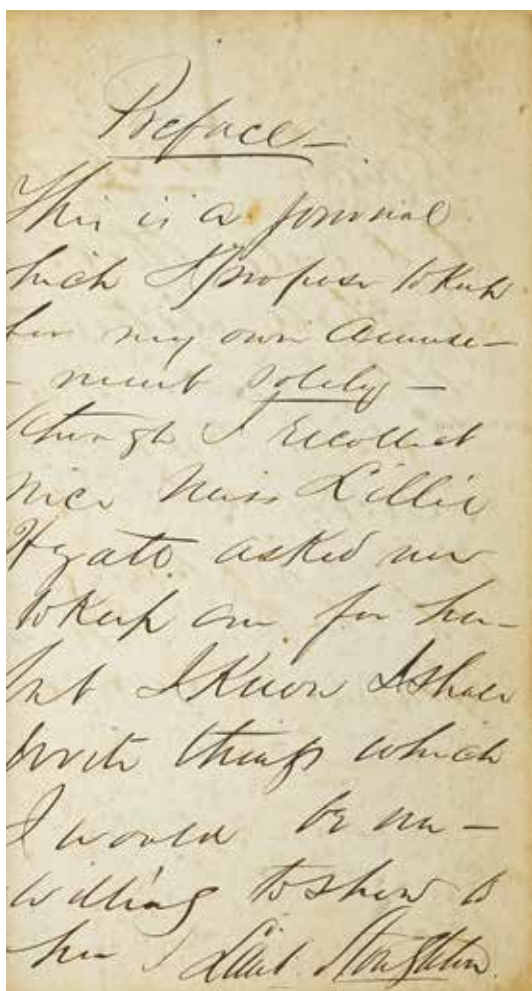 Preface —
This is a journal
which I propose to keep
for my own amuse-
- ment solely —
though I recollect
nice Miss Lillie
Hyatt asked me
to keep one for her -
but I know I shall
write things which
I would be un-
willing to show to
her Lieut. Stoughton.